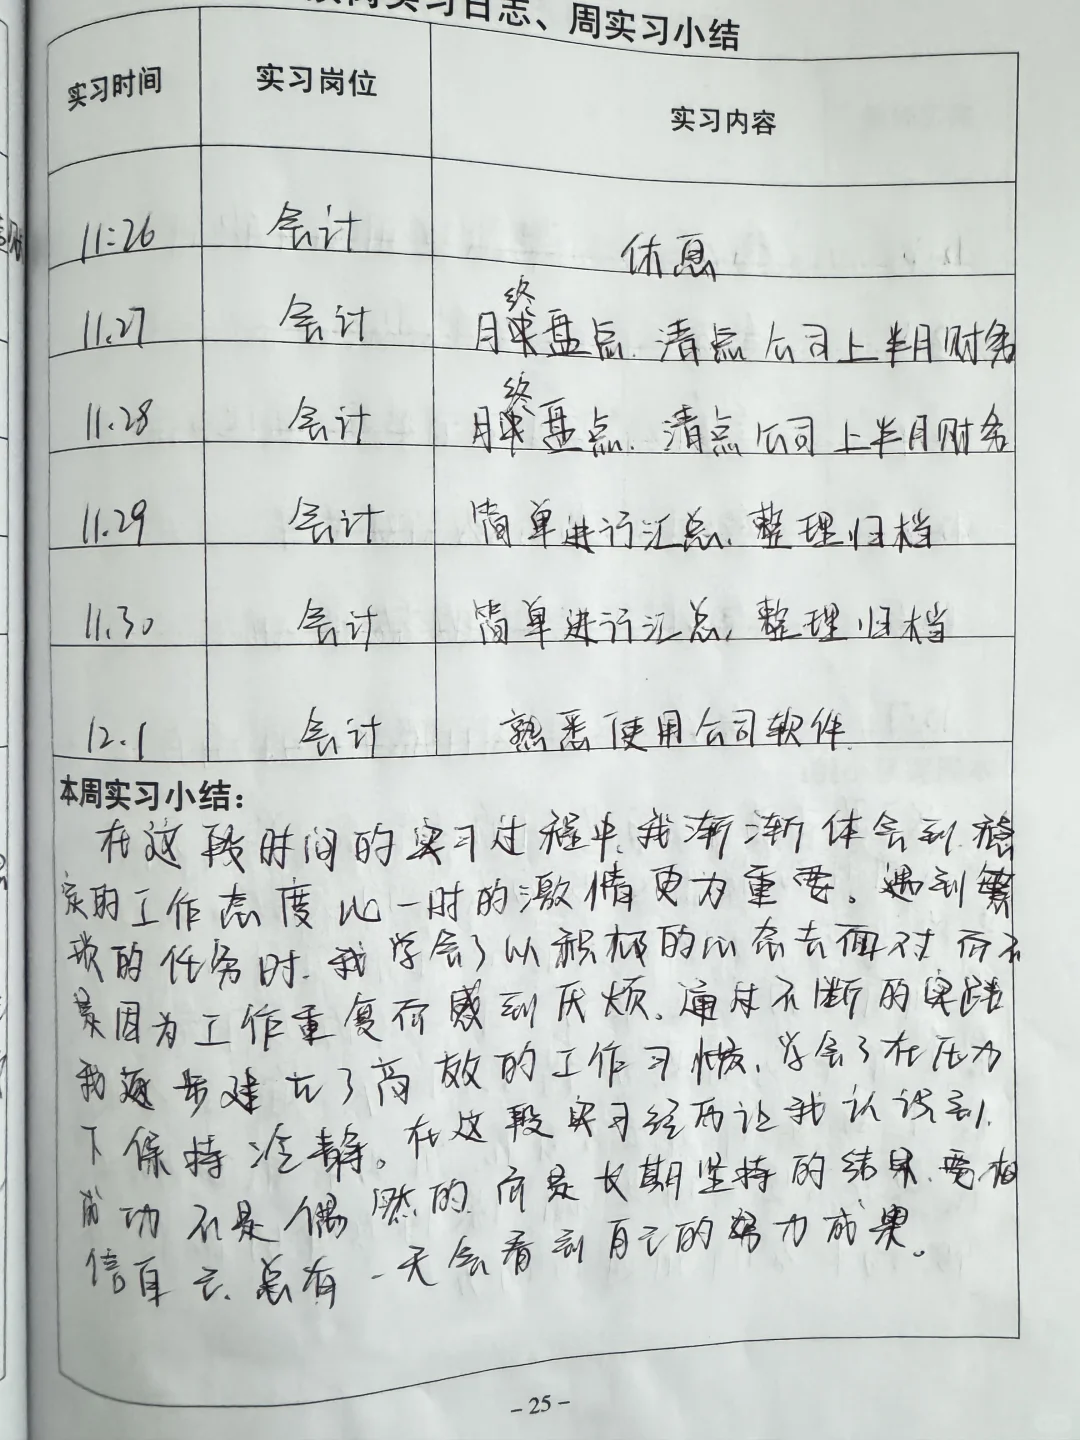 实习日志、周实习小结
实习时间 实习岗位 实习内容
11:26 会计 休息
终
11.27 会计 月盘点.清点公司上半月财务
终
11.28 会计 月盘点.清点公司上半月财务
11.29 会计 简单进行汇总、整理归档
11.30 会计 简单进行汇总,整理归档
12.1 会计 熟悉使用公司软件
本周实习小结:
在这段时间的实习过程中,我渐渐体会到.稳
实的工作态度比一时的激情更为重要。遇到繁
琐的任务时.我学会了以积极的心态去面对而不
是因为工作重复而感到厌烦。通过不断的实践
我逐步建立了高效的工作习惯、学会了在压力
下保持冷静。在这段实习经历让我认识到.
成功不是偶然的.而是长期坚持的结果.要相
信自己.总有一天会看到自己的努力成果。
- 25 -